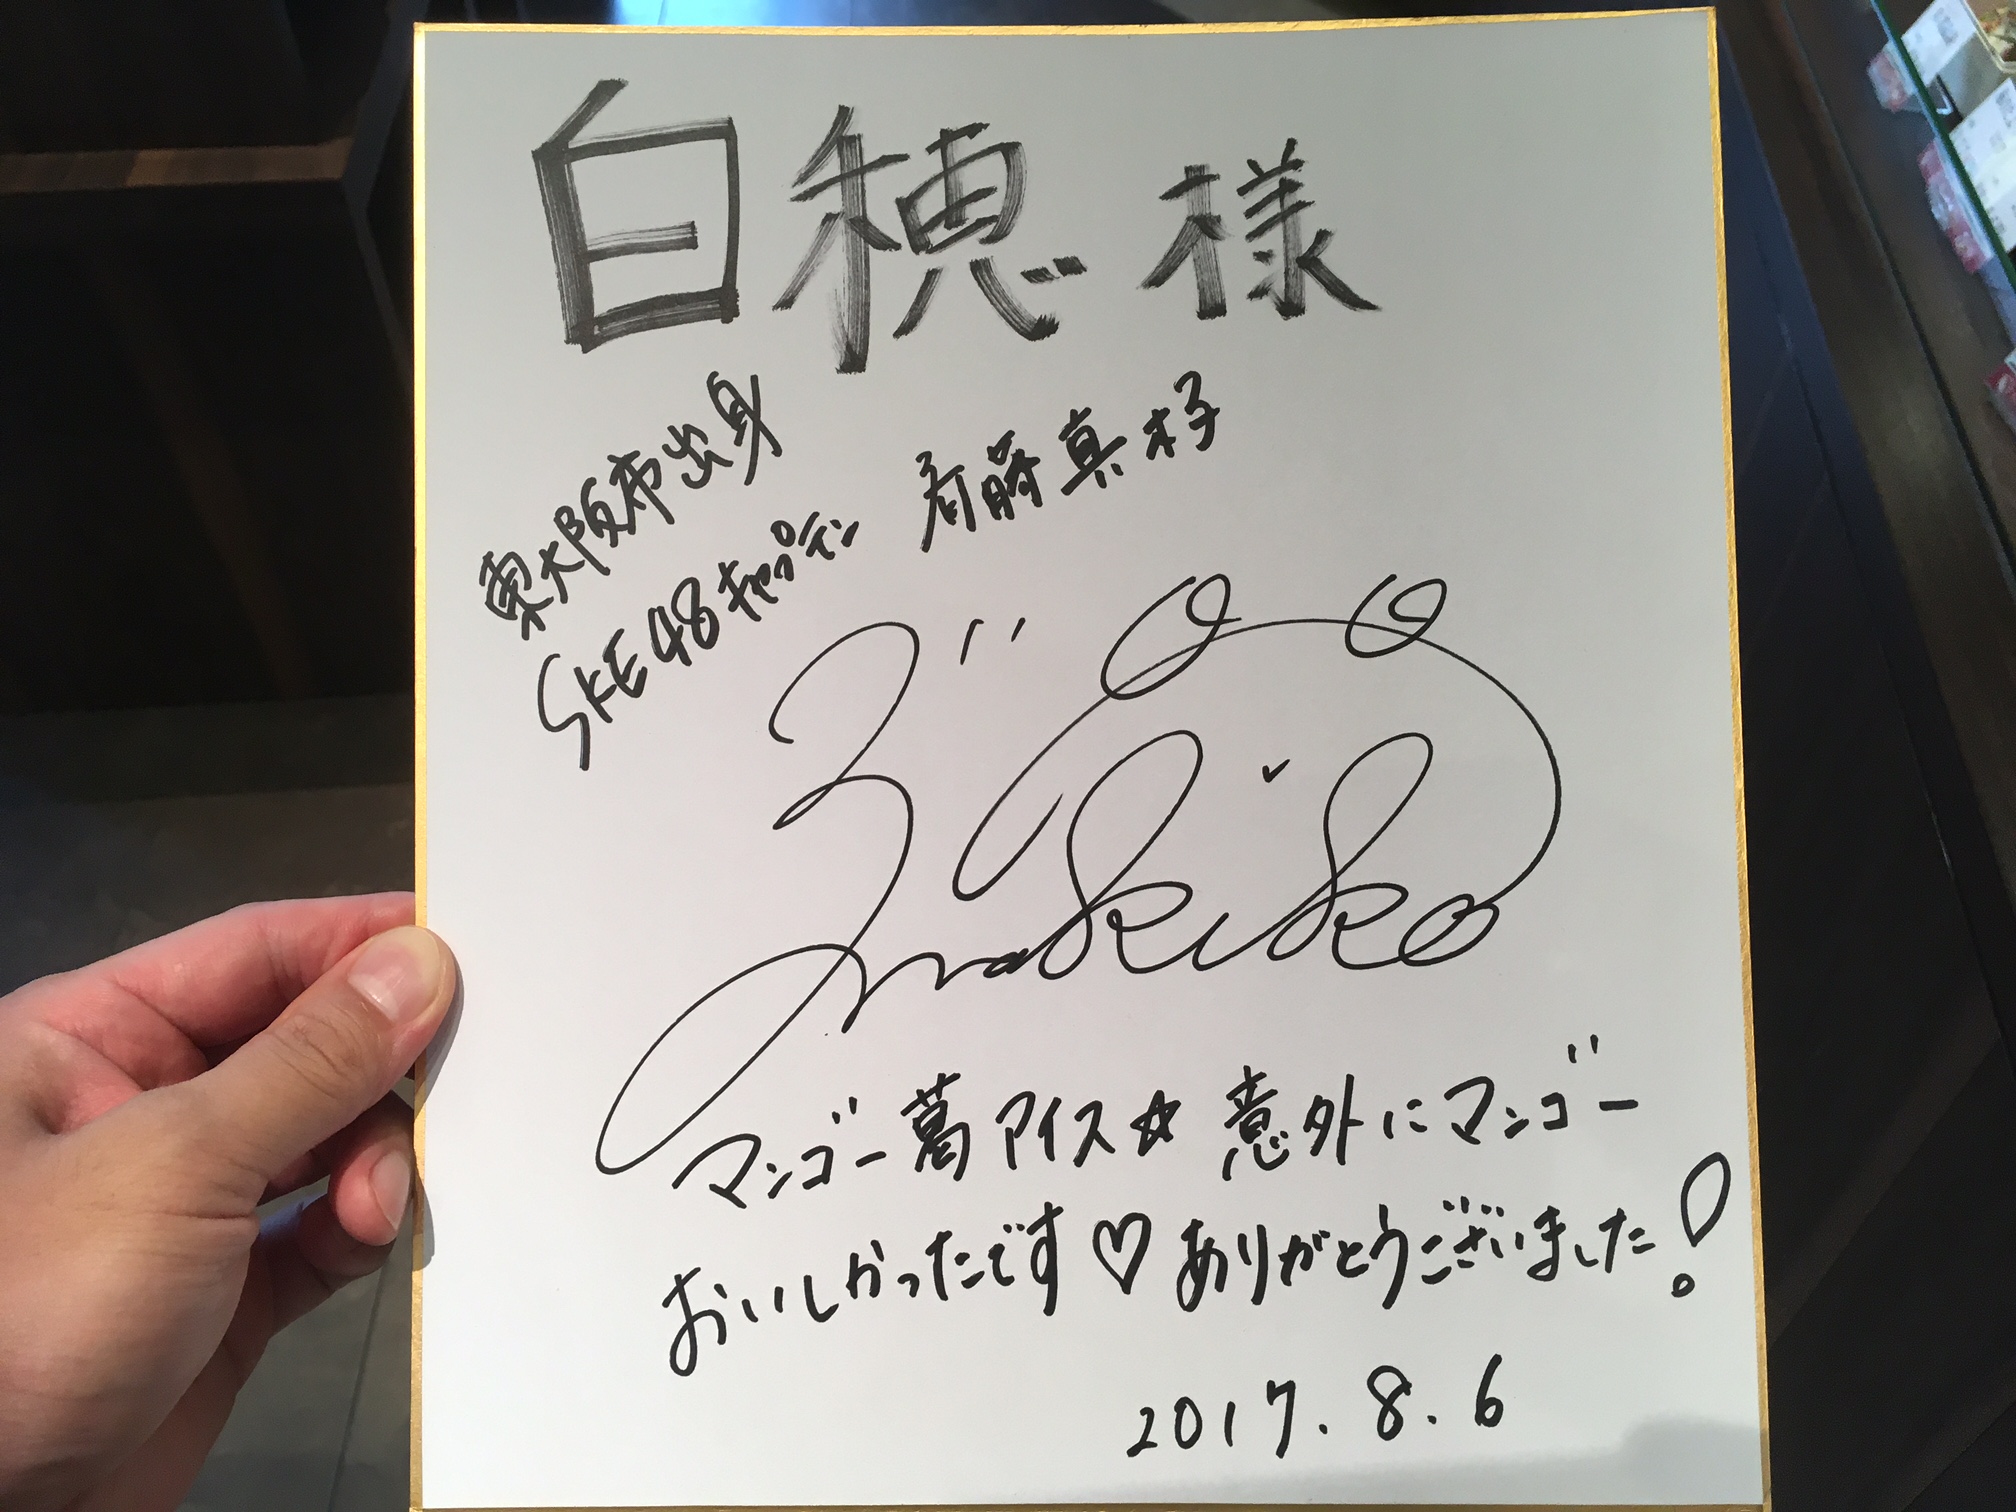 白穂様
東大阪市出身
SKE48キャプテン 斉藤真木子
makiko
マンゴー葛アイス☆意外にマンゴー
おいしかったです♡ありがとうございました!
2017.8.6